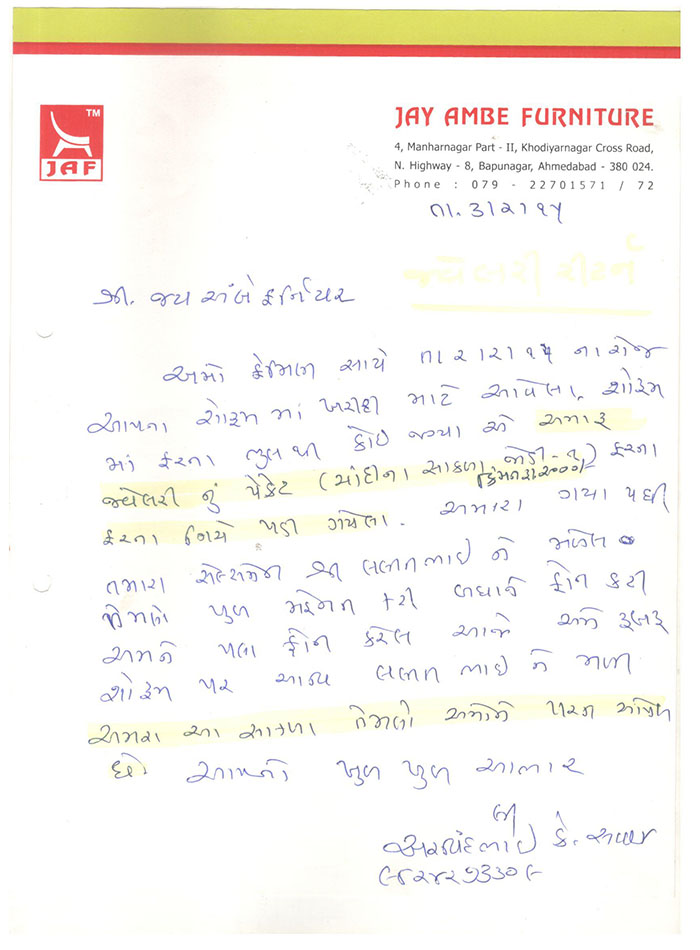 TM
JAF
JAY AMBE FURNITURE
4, Manharnagar Part - II, Khodiyarnagar Cross Road,
N. Highway - 8, Bapunagar, Ahmedabad - 380 024.
Phone : 079 - 22701571 / 72
તા. ૩।૨।૧૫
જ્વેલરી રીટર્ન
શ્રી. જય અંબે ફર્નિચર
અમો ફેમિલી સાથે તા ૨।૨।૧૫ ના રોજ
આપના શોરૂમ માં ખરીદી માટે આવેલા. શોરૂમ
માં ફરતા ભુલ થી કોઇ જગ્યા એ અમારૂ
જ્વેલરી નું પેકેટ (ચાંદીના સાકળા જોડી - ૧) ફરતા
કિંમત રૂ ૨૦૦૦/-
ફરતા નિચે પડી ગયેલા. અમારા ગયા પછી
તમારા શ્રી લલીતભાઇ ને મળેલ
તેમણે ખુબ મહેનત કરી બધાને ફોન કરી
અમને પણ ફોન કરેલ આજે અમે રૂબરૂ
શોરૂમ પર આવી લલીતભાઇ ને મળી
અમારા આ સાકળા તેમણે અમોને પરત આપેલ
છે. આપનો ખુબ ખુબ આભાર
લી
અરવિંદભાઇ કે.